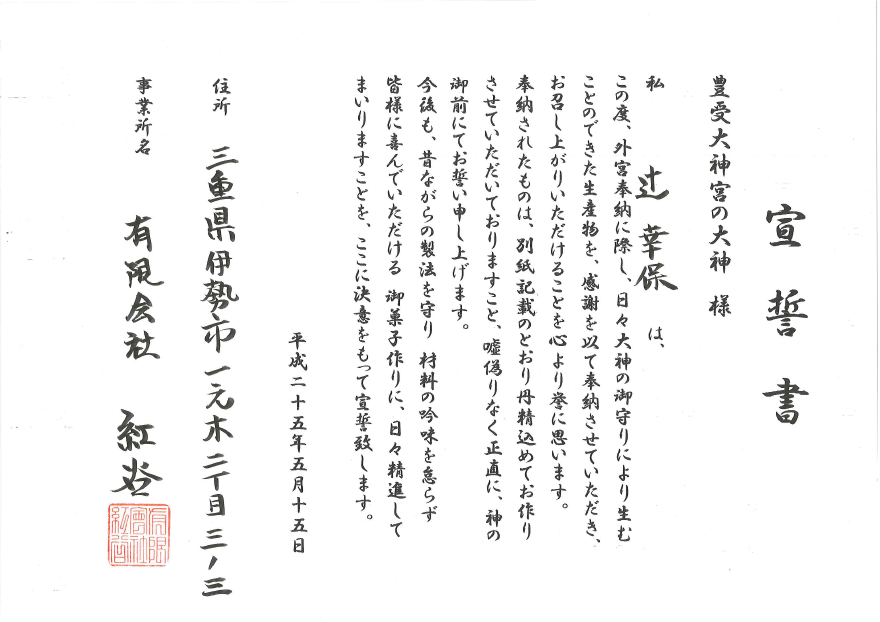 宣誓書
豊受大神宮の大神 様
私 辻 幸保 は、
この度、外宮奉納に際し、日々大神の御守りにより生む
ことのできた生産物を、感謝を以て奉納させていただき、
お召し上がりいただけることを心より誉に思います。
奉納されたものは、別紙記載のとおり丹精込めてお作り
させていただいておりますこと、嘘偽りなく正直に、神の
御前にてお誓い申し上げます。
今後も、昔ながらの製法を守り 材料の吟味を怠らず
皆様に喜んでいただける 御菓子作りに、日々精進して
まいりますことを、ここに決意をもって宣誓致します。
平成二十五年五月十五日
住所 三重県伊勢市一元木二丁目三ノ三
事業所名 有限会社 紅谷
有限会社紅谷